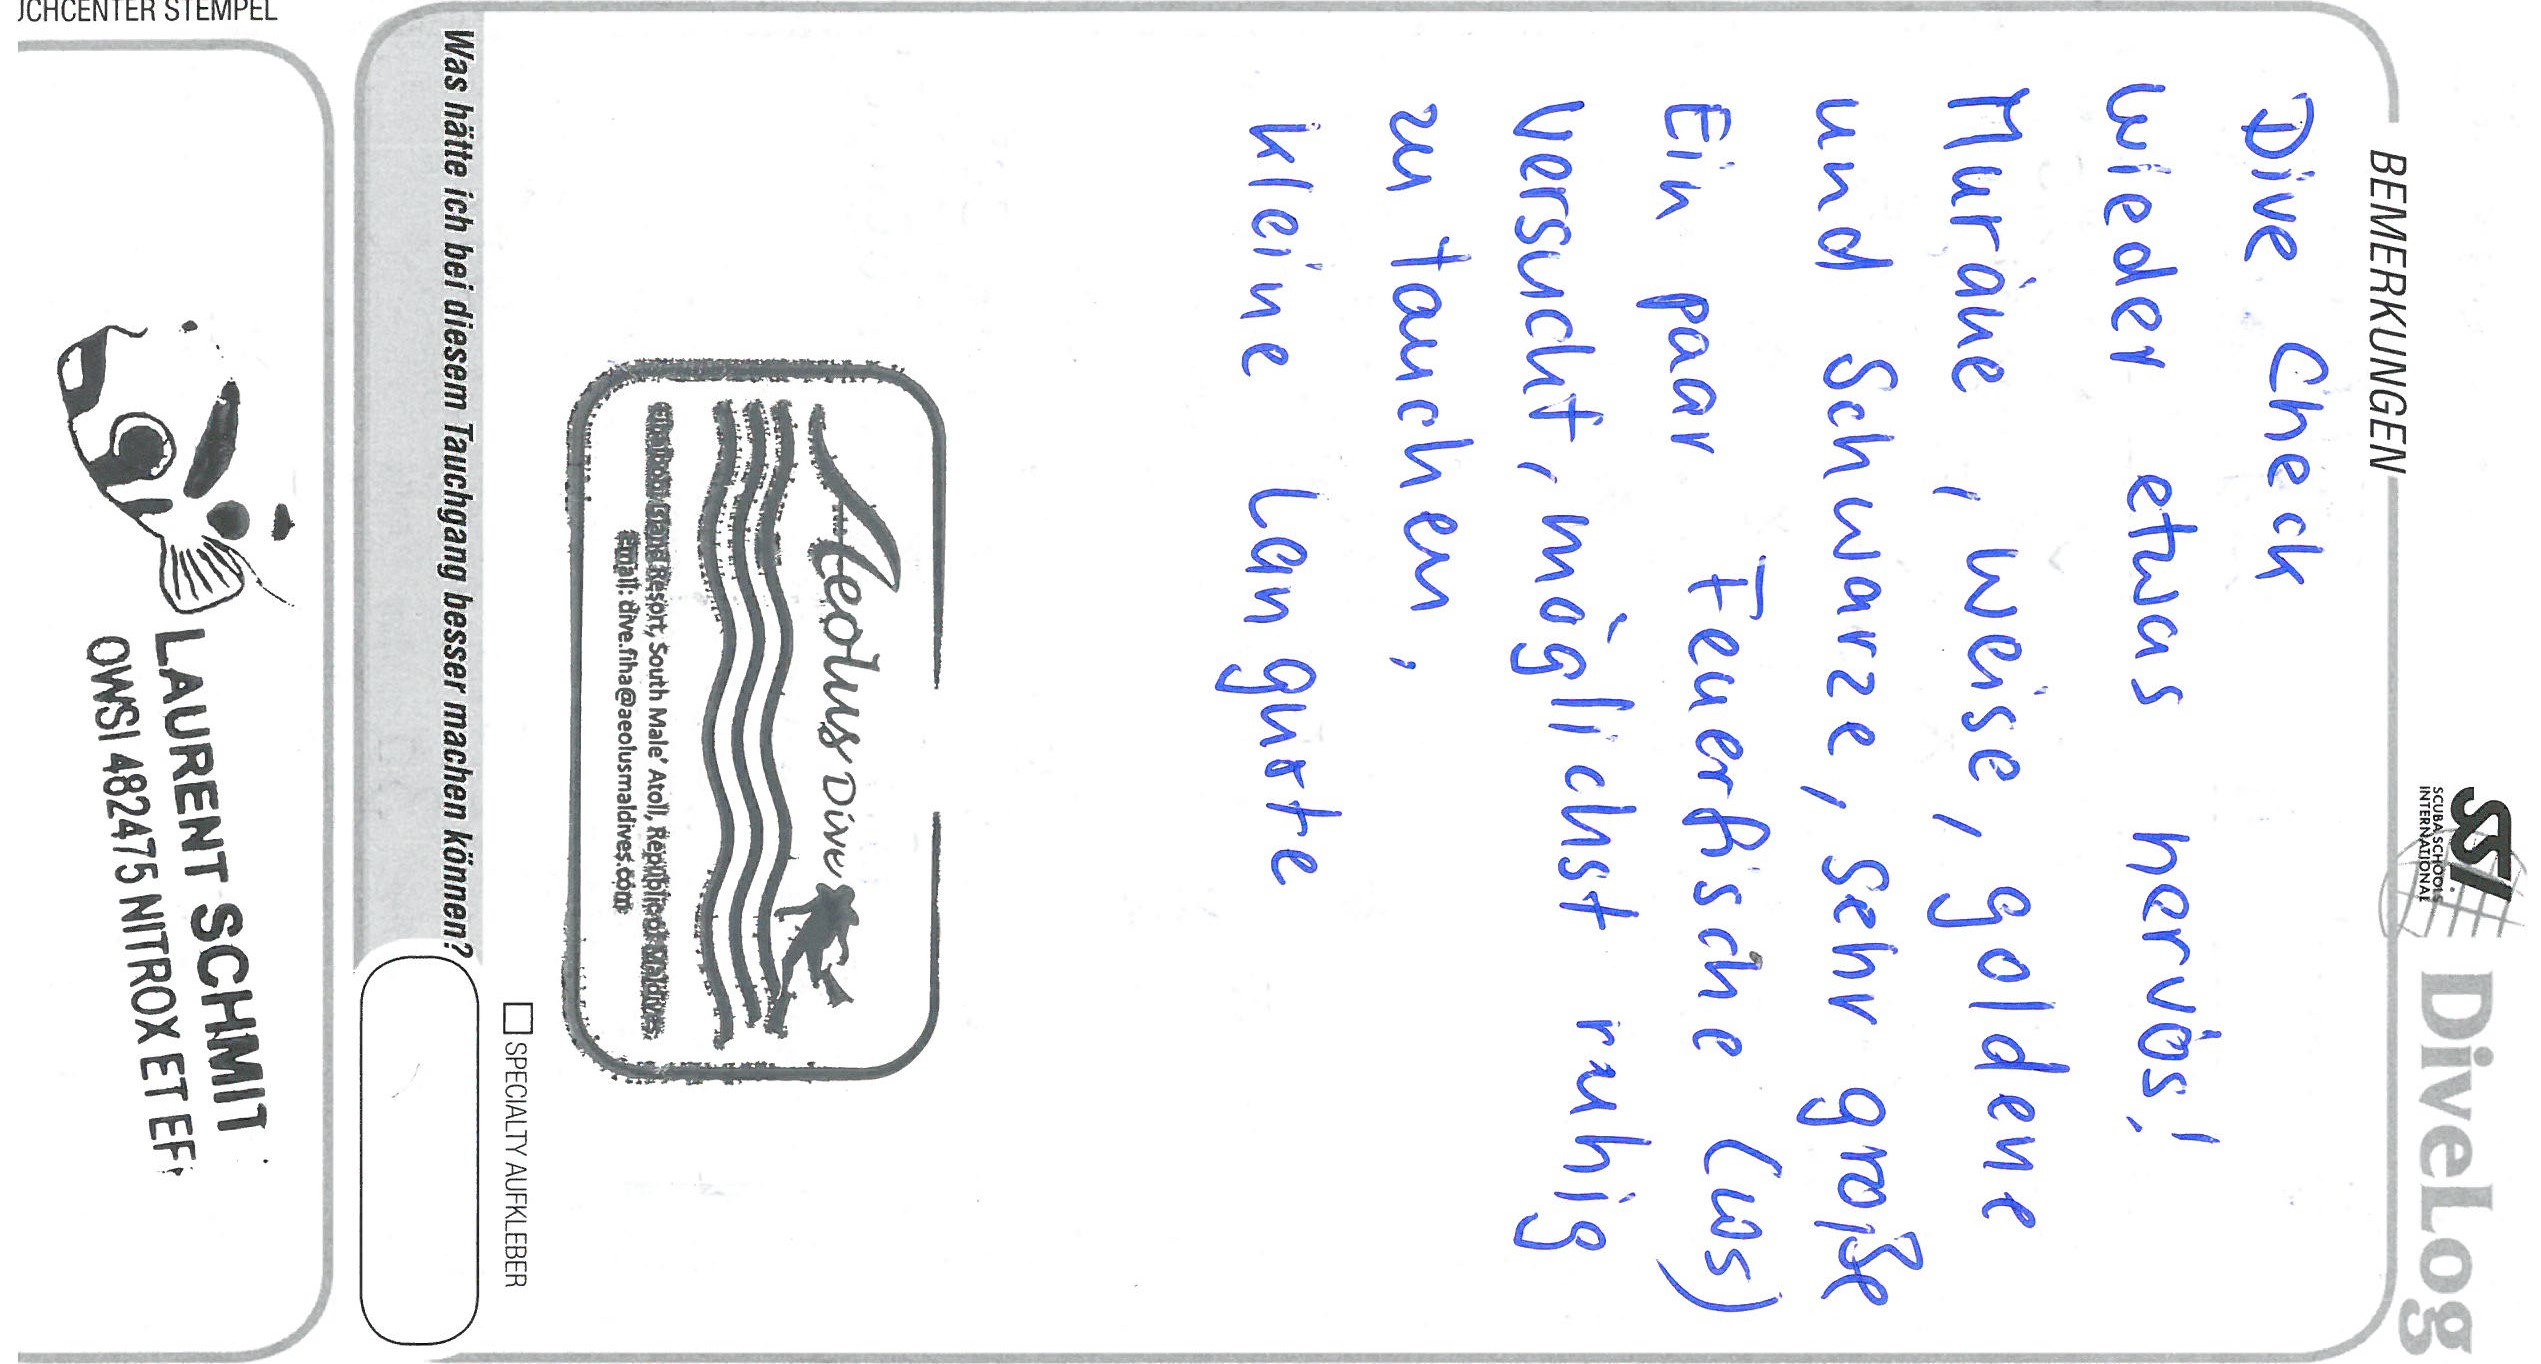 SSI DiveLog
SCUBA SCHOOLS
INTERNATIONAL
BEMERKUNGEN
Dive Check
wieder etwas nervös!
Muräne, weise, goldene
und Schwarze, sehr große
Ein paar Feuerfische (ws)
versucht, möglichst ruhig
zu tauchen,
kleine Languste
Aeolus Dive
Resort, South Male' Atoll, Republic of Maldives
Email: dive.fiha@aeolusmaldives.com
SPECIALTY AUFKLEBER
Was hätte ich bei diesem Tauchgang besser machen können?
LAURENT SCHMIT
OWSI 482475 NITROX ET EFR
UCHCENTER STEMPEL